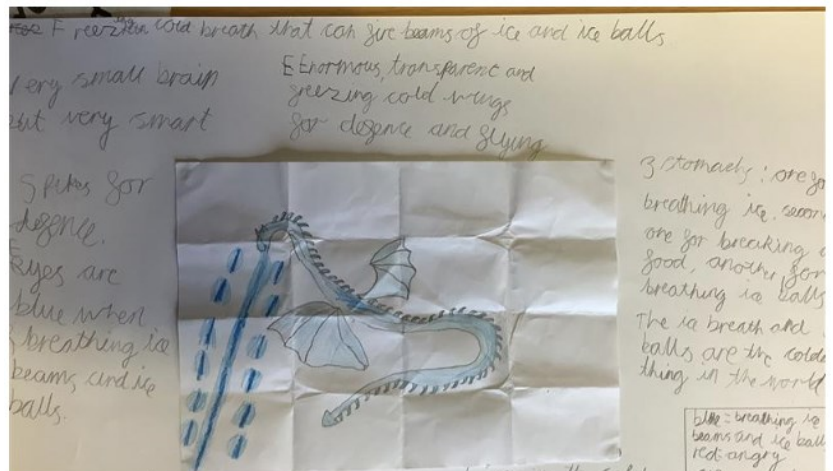 Freezing cold breath that can fire beams of ice and ice balls
Very small brain
but very smart
Enormous, transparent and
freezing cold wings
for defence and flying
Spikes for
defence.
Eyes are
blue when
breathing ice
beams and ice
balls.
3 stomachs: one for
breathing ice, second
one for breaking
food, another for
breathing ice balls
The ice breath and
balls are the colde
thing in the world
blue = breathing ice
beams and ice ball
red = angry